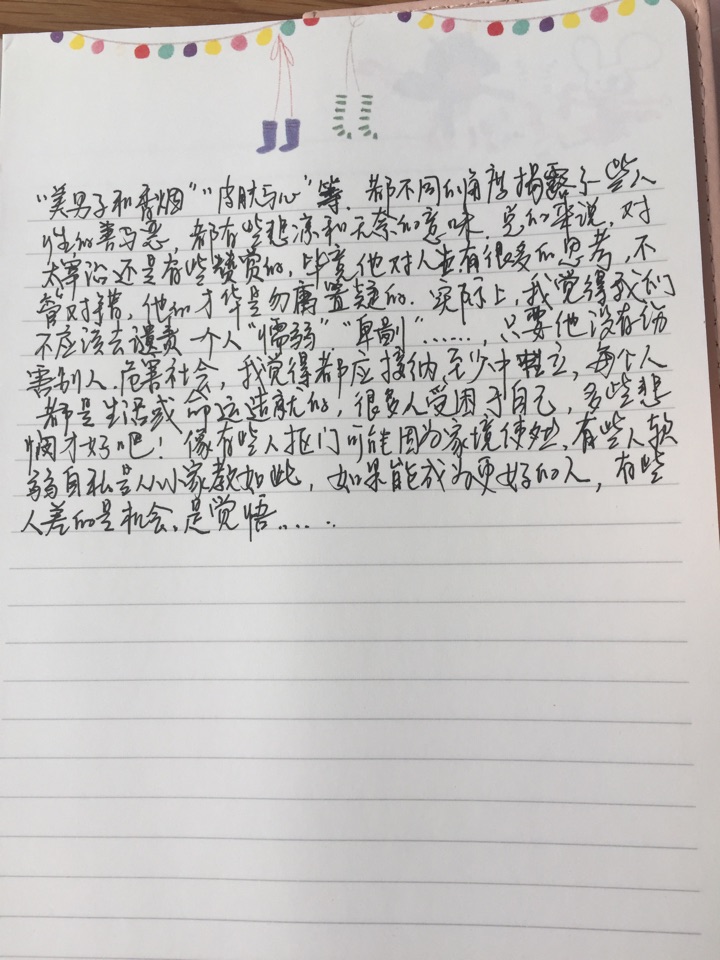 “美男子和香烟”“皮肤与心”等,都不同的角度揭露了一些人
性的善与恶,都有些悲凉和无奈的意味.总的来说,对
太宰治还是有些赞赏的,毕竟他对人世有很多的思考,不
管对错,他的才华是勿庸置疑的.实际上,我觉得我们
不应该去谴责一个人“懦弱”.“卑劣”……,只要他没有伤
害别人.危害社会,我觉得都应接纳至少中立,每个人
都是生活或命运造就的,很多人受困于自己,多些悲
悯才好吧!像有些人抠门可能因为家境使然,有些人软
弱自私是从小家教如此,如果能成为更好的人,有些
人差的是机会、是觉悟……